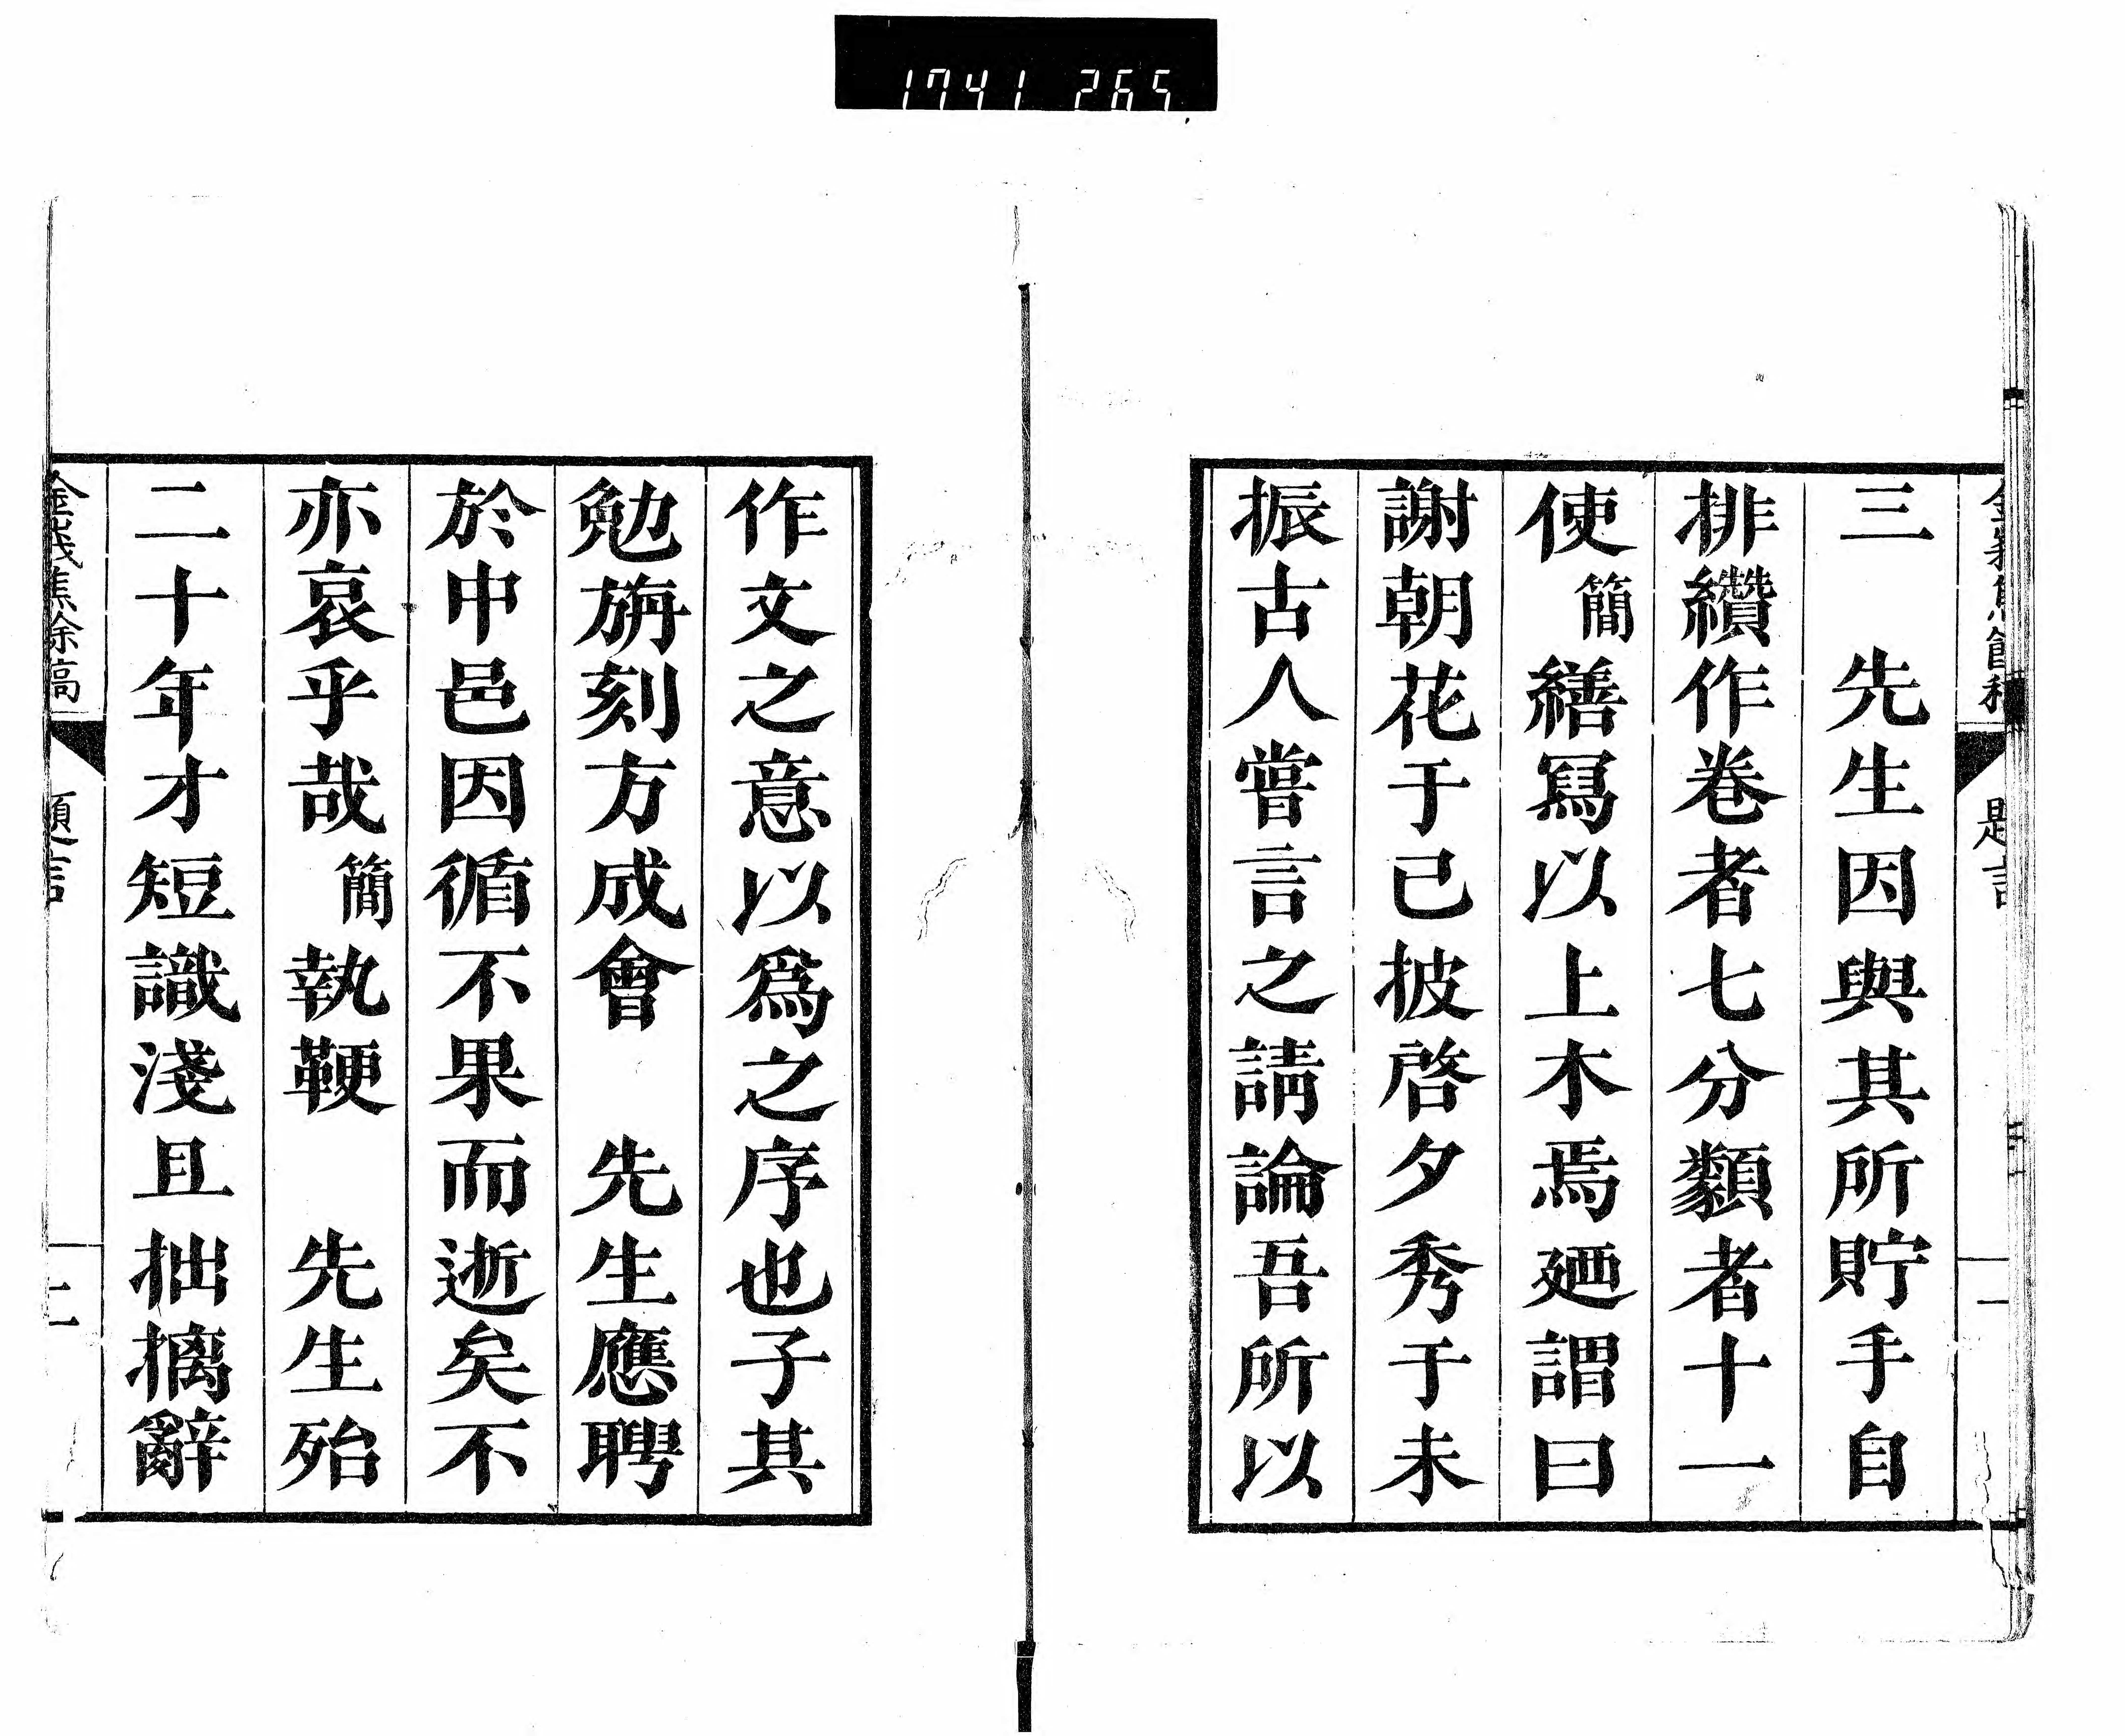 1741 265
三　先生因與其所貯手自
排纘作卷者七分類者十一
使簡繕寫以上木焉廼謂曰
謝朝花于已披啓夕秀于未
振古人嘗言之請論吾所以
作文之意以爲之序也子其
勉旃刻方成會　先生應聘
於中邑因循不果而逝矣不
亦哀乎哉簡執鞭　先生殆
二十年才短識淺且拙摛辭
金峩焦餘稿
題言
一
金峩焦餘稿
題言
二